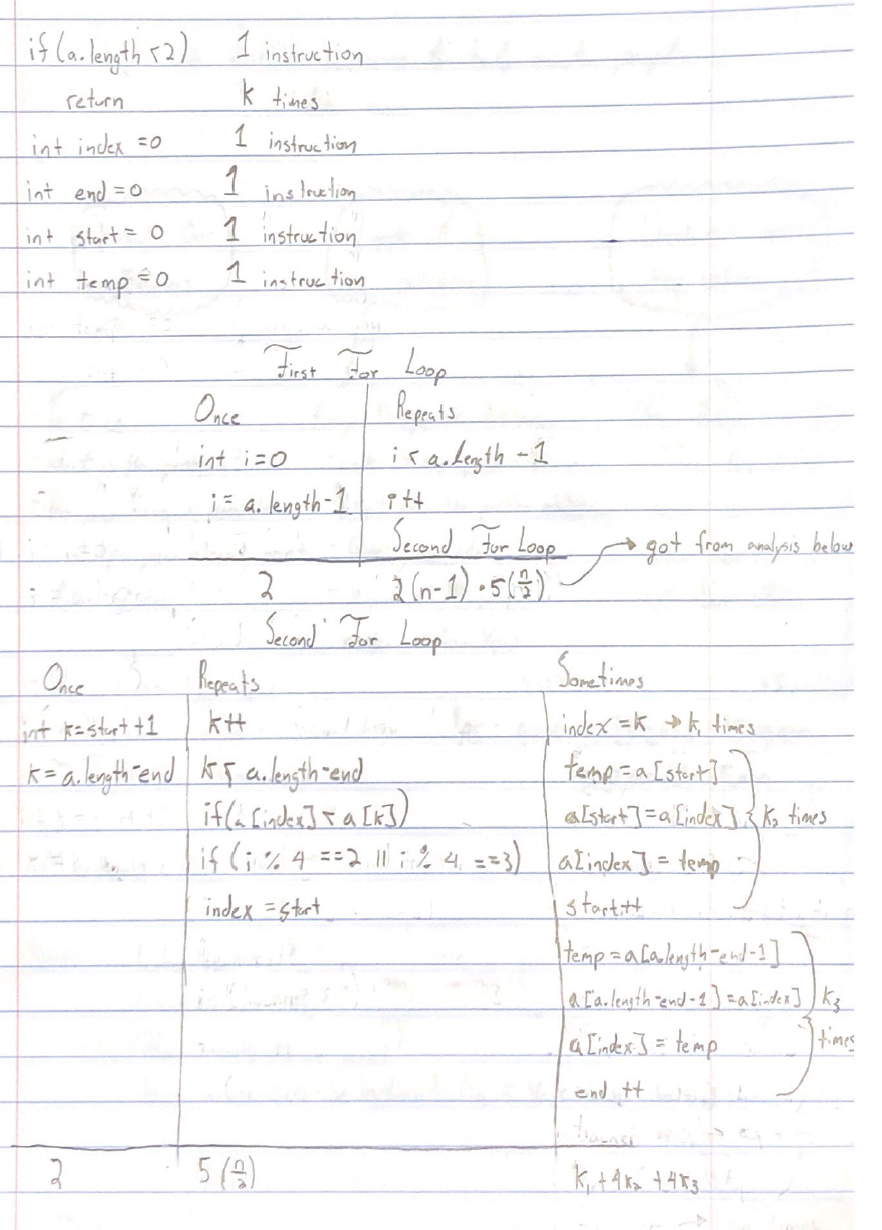 if (a.length < 2) 1 instruction
return k times
int index = 0 1 instruction
int end = 0 1 instruction
int start = 0 1 instruction
int temp = 0 1 instruction
First For Loop
Once Repeats
int i = 0 i < a.length - 1
i = a.length - 1 i++
Second For Loop → got from analysis below
2 2(n-1) · 5(n/2)
Second For Loop
Once Repeats Sometimes
int k = start + 1 k++ index = k → k₁ times
k = a.length - end k < a.length - end temp = a[start]
if(a[index] < a[k]) a[start] = a[index] k₂ times
if (i % 4 == 2 || i % 4 == 3) a[index] = temp
index = start start++
temp = a[a.length - end - 1]
a[a.length - end - 1] = a[index] k₃
a[index] = temp times
end ++
2 5(n/2) k₁ + 4k₂ + 4k₃